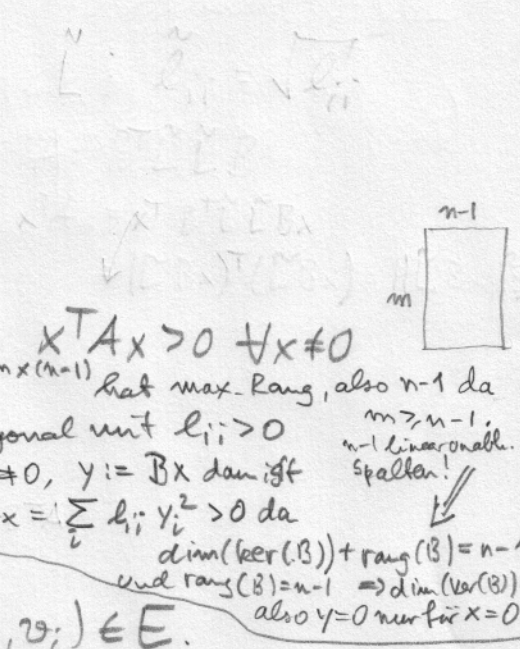 n-1
m
x^T A x > 0 ∀x ≠ 0
m×(n-1) hat max. Rang, also n-1 da
m ≥ n-1,
n-1 linear unabh.
Spalten!
gonal mit l_ii > 0
≠ 0, y := Bx dann ist
x = Σ_i l_ii y_i^2 > 0 da
dim(ker(B)) + rang(B) = n-1
und rang(B) = n-1 ⇒ dim(ker(B))
also y=0 nur für x=0
, v_j) ∈ E.